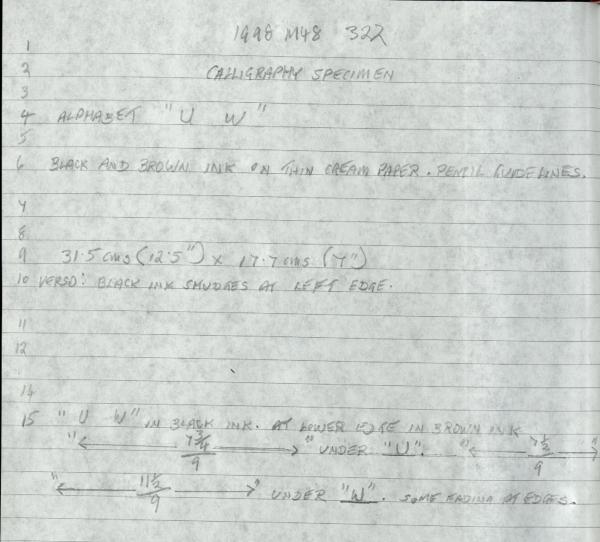 1998 M48 322
1
2 CALLIGRAPHY SPECIMEN
3
4 ALPHABET "U W"
5
6 BLACK AND BROWN INK ON THIN CREAM PAPER. PENCIL GUIDELINES.
7
8
9 31.5 cms (12.5") x 17.7 cms (7")
10 VERSO: BLACK INK SMUDGES AT LEFT EDGE.
11
12
14
15 "U W" IN BLACK INK. AT LOWER EDGE IN BROWN INK
"← 7 3/4 / 9 →" UNDER "U". "← 7 1/2 / 9 →"
"← 11 1/2 / 9 →" UNDER "W". SOME FADING AT EDGES.